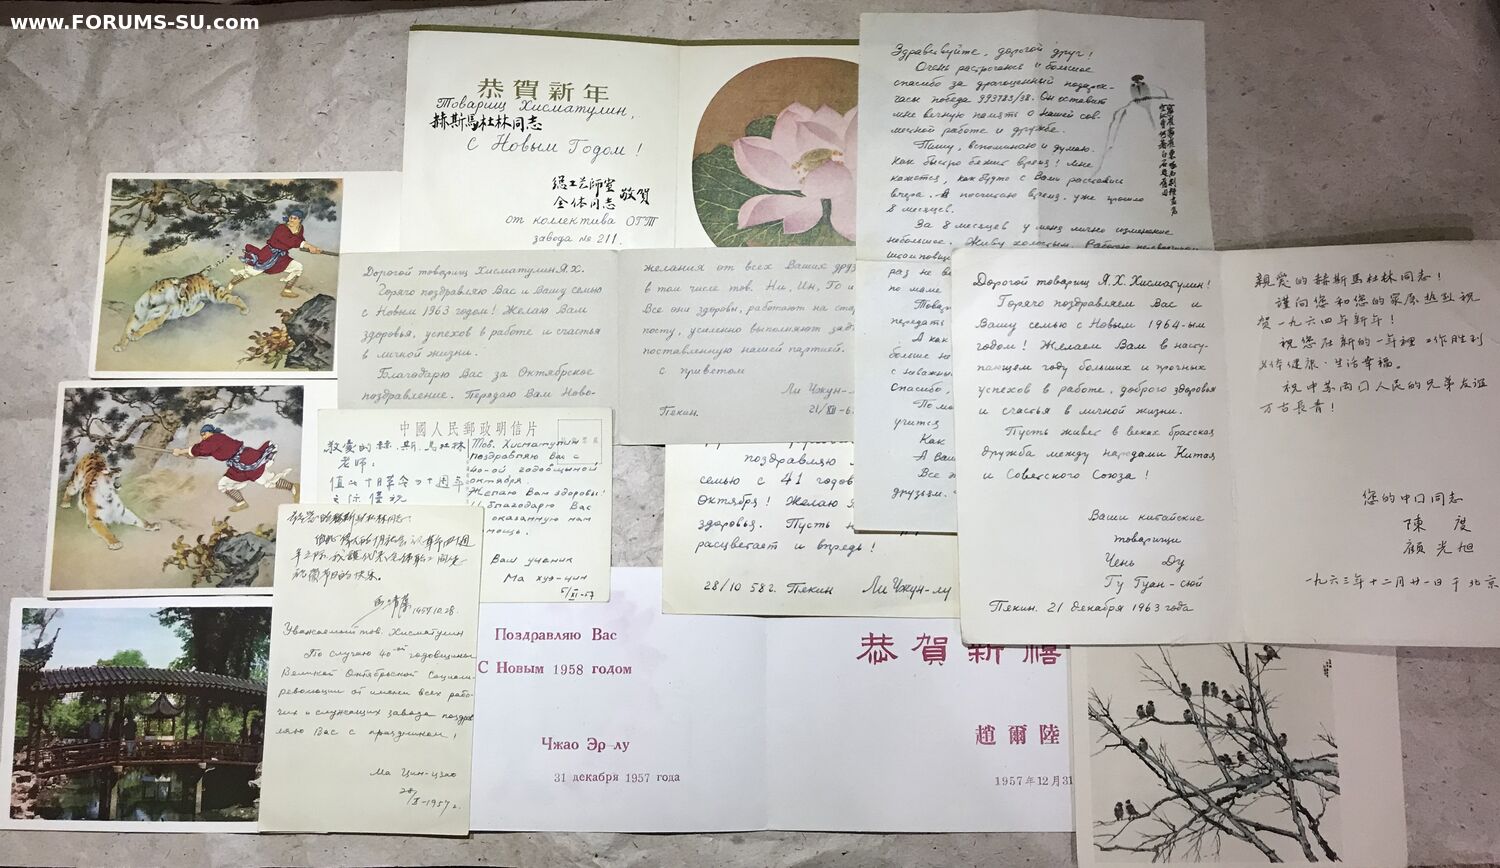 www.FORUMS-SU.com
恭賀新年
Товарищ Хисматулин,
赫斯馬杜林同志
С Новым Годом!
总工艺师室
全体同志 敬賀
от коллектива ОГТ
завода № 211.
Здравствуйте, дорогой друг!
Очень растроганы и большое
спасибо за драгоценный подарок-
часы победа 993783/38. Он оставит
мне вечную память о нашей сов-
местной работе и дружбе.
Пишу, вспоминаю и думаю.
Как быстро бежит время! Мне
кажется, как будто с Вами расстались
вчера. А посчитаю время, уже прошло
8 месяцев.
За 8 месяцев у меня лично изменение
небольшое. Живу холостым. Работаю
раз не
по маме
Товар
передать
А как
больше н
Спасибо,
По мо
учится
Как
А Ваш
Все
друзьям.
Дорогой товарищ Хисматулин Я.Х.
Горячо поздравляю Вас и Вашу семью
с Новым 1963 годом! Желаю Вам
здоровья, успехов в работе и счастья
в личной жизни.
Благодарю Вас за Октябрское
поздравление. Передаю Вам Ново-
желания от всех Ваших друз
в том числе тов. Ни, Ин, Го и
Все они здоровы, работают на ста
посту, усиленно выполняют зад
поставленную нашей партией.
с приветом
Ли Чжун-
Пекин. 21/XII-6
Дорогой товарищ Я.Х.Хисматулин!
Горячо поздравляем Вас и
Вашу семью с Новым 1964-ым
годом! Желаем Вам в насту-
пающем году больших и прочных
успехов в работе, доброго здоровья
и счастья в личной жизни.
Пусть живёт в веках братская
дружба между народами Китая
и Советского Союза!
Ваши китайские
товарищи
Чень Ду
Гу Гуан-сюй
Пекин. 21 декабря 1963 года
親爱的赫斯馬杜林同志!
謹向您和您的家属热烈祝
賀一九六四年新年!
祝您在新的一年裡工作胜利
身体健康、生活幸福。
祝中苏两国人民的兄弟友谊
万古長青!
您的中国同志
陳度
顧光旭
一九六三年十二月廿一日于北京
中國人民郵政明信片
敬愛的赫斯馬杜林
老师:
值此十月革命四十週年
之际 谨祝
Тов. Хисматулин
Поздравляю Вас с
40-ой годовщиной
октября
Желаю Вам здоровья!
И благодарю Вас
оказанную нам
помощь.
Ваш ученик
Ма хуэ-цин
5/XI-57
поздравляю
семью с 41 годов
Октября! Желаю
здоровья. Пусть
расцветает и впредь!
28/10 58г. Пекин Ли Чжун-лу
1957.10.28.
Уважаемый тов. Хисматулин
По случаю 40-ой годовщины
Великой Октябрьской Социали-
революции от имени всех рабо-
чих и служащих завода поздрав
ляю Вас с праздником!
Ма Цин-цзао
28/X-1957г.
Поздравляю Вас
С Новым 1958 годом
Чжао Эр-лу
31 декабря 1957 года
恭賀新禧
趙爾陸
1957年12月31